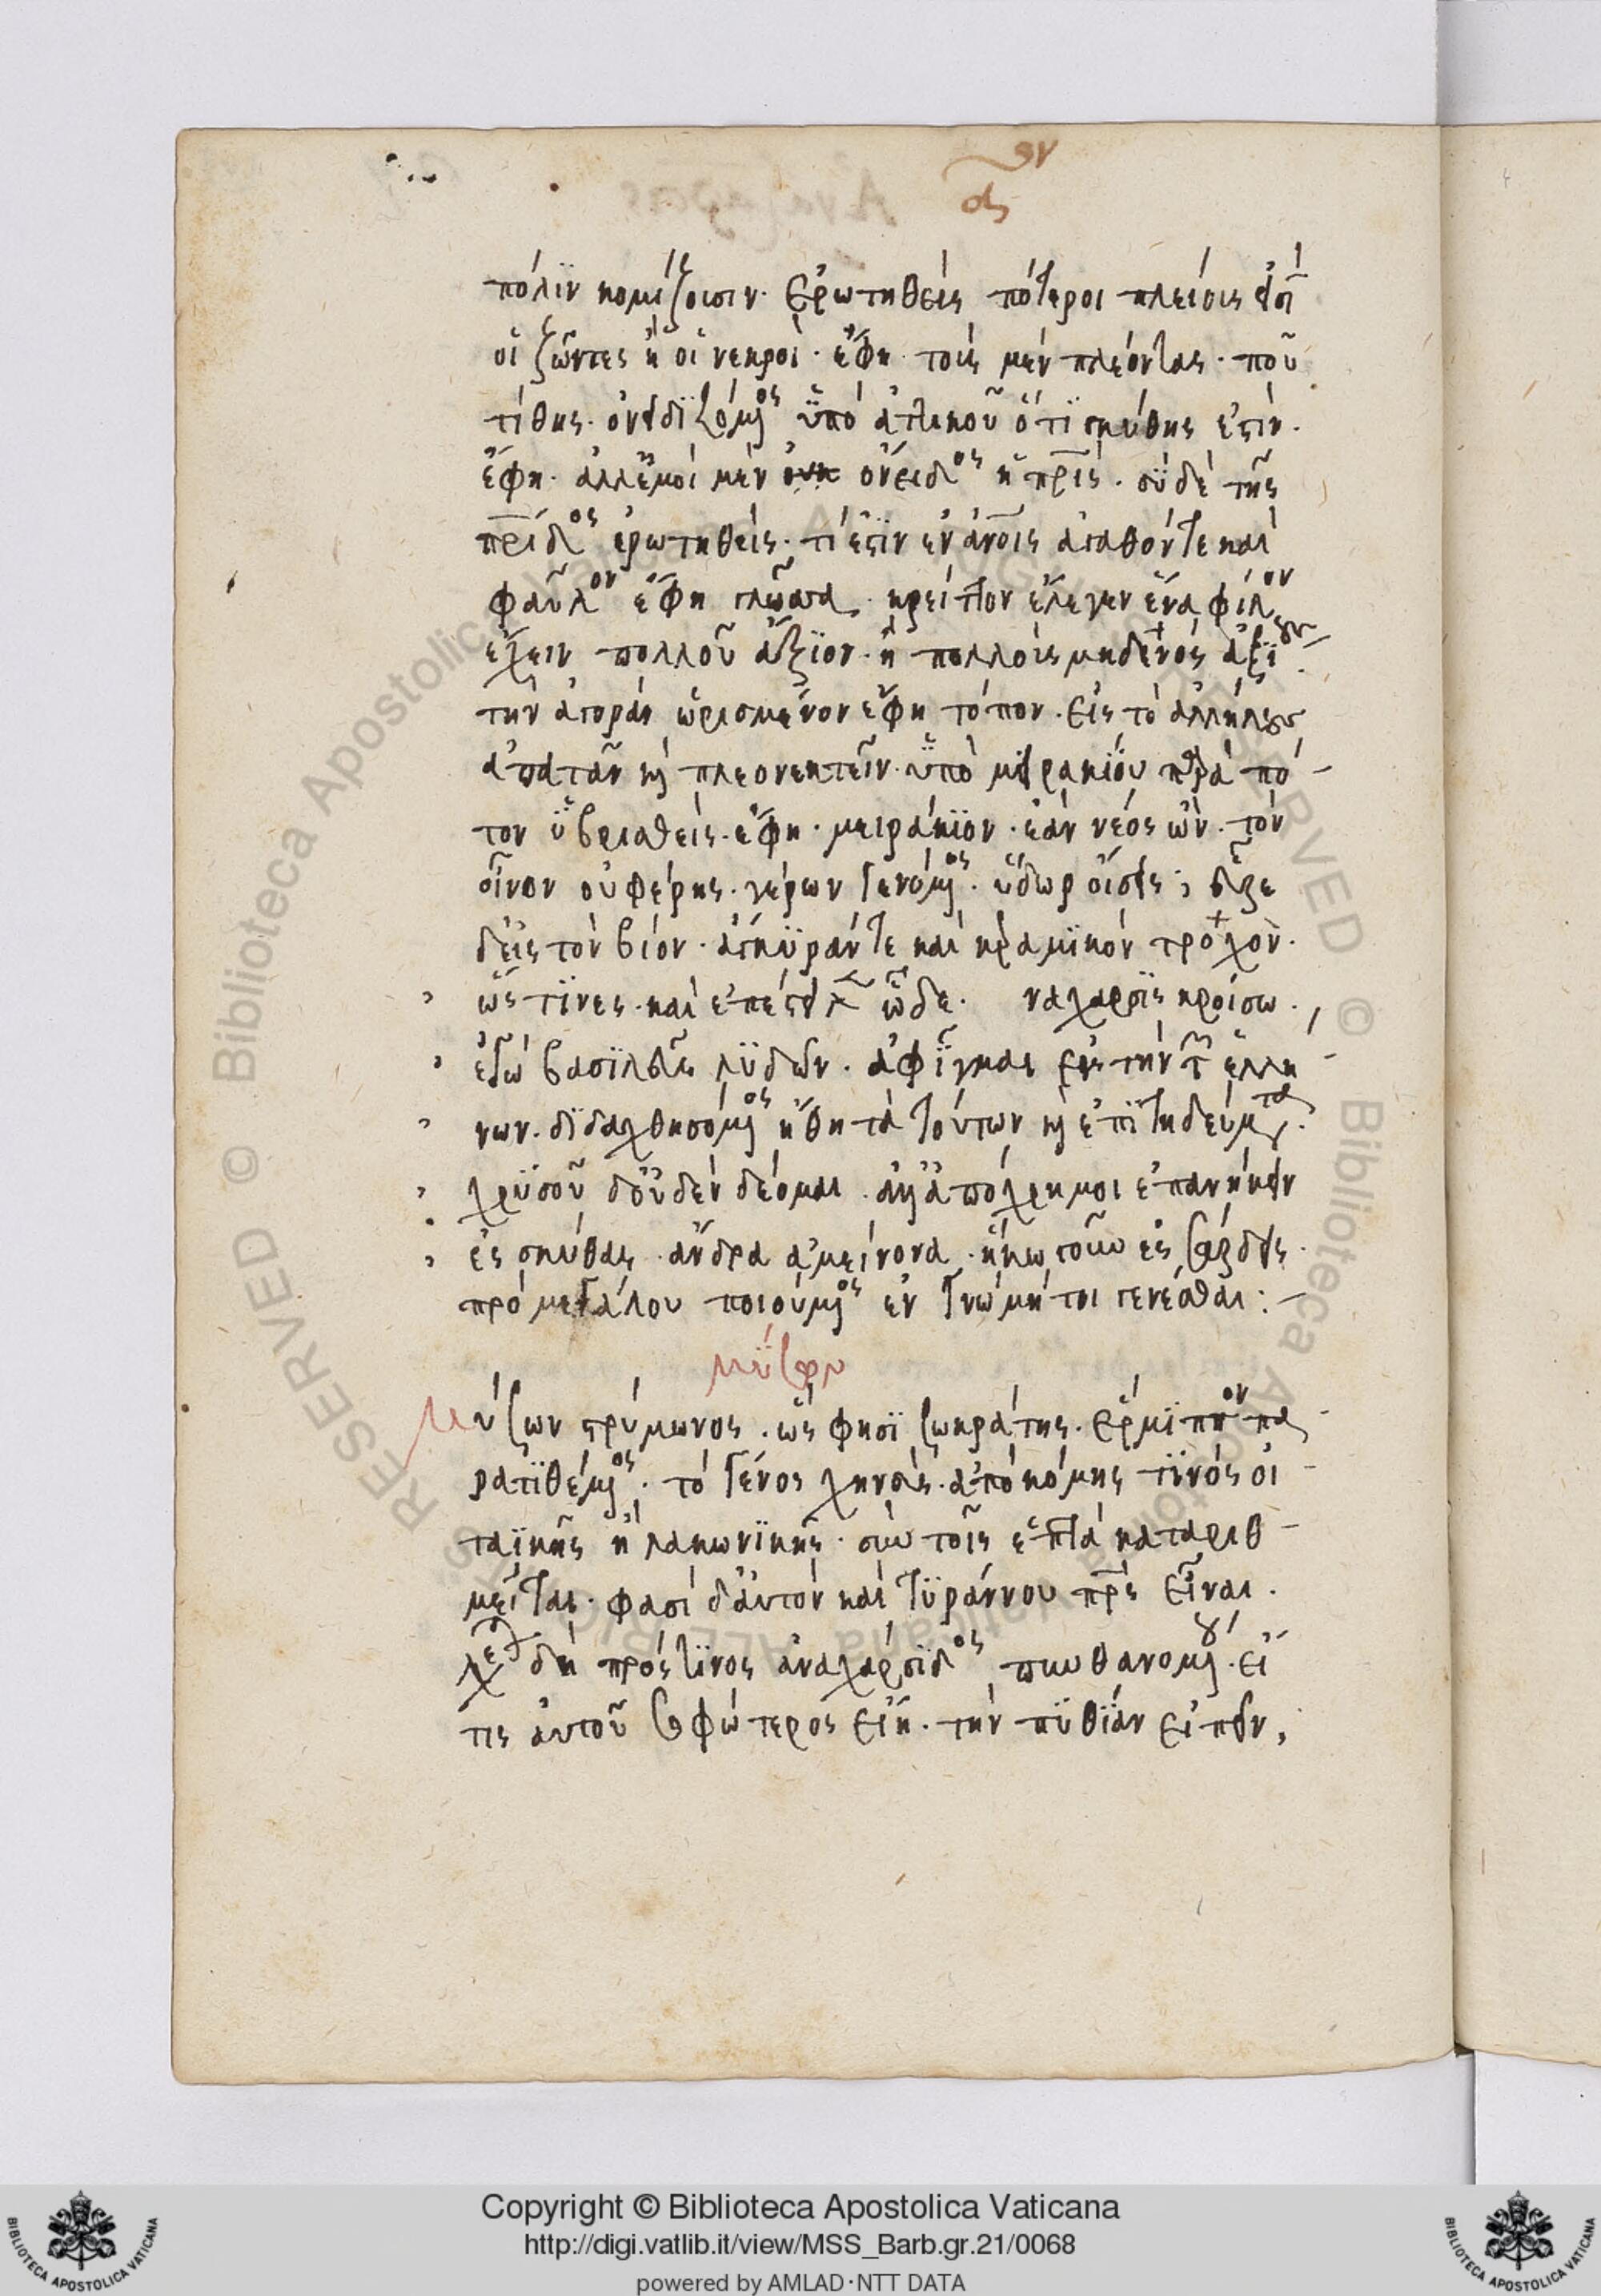 πόλϊν κομίζουσιν. Ἐρωτηθεὶς πότεροι πλείους εἰσὶ
οἱ ζῶντες ἢ οἱ νεκροί. ἔφη. τοὺς μὲν πλέοντας. ποῦ
τίθης. ὀνειδϊζόμενος ὑπὸ ἀττικοῦ ὅτϊ σκύθης ἐστίν.
ἔφη. ἀλλ' ἐμοὶ μὲν ὄνειδος ἡ πρὶς. σὺ δὲ τῆς
πρίδος ἐρωτηθεὶς. τί ἐστϊν ἐν ἀνοις ἀγαθόν τε καὶ
φαῦλον ἔφη γλῶσσα. κρεῖττον ἔλεγεν ἕνα φίλον
ἔχειν πολλοῦ ἄξϊον. ἢ πολλοὺς μηδενὸς ἀξίους.
τὴν ἀγορὰν ὡρισμένον ἔφη τόπον. εἰς τὸ ἀλλήλους
ἀπατᾶν καὶ πλεονεκτεῖν. ὑπὸ μειρακϊου παρὰ πό-
τον ὑβρισθεὶς. ἔφη. μειράκϊον. ἐὰν νέος ὢν. τὸν
οἶνον οὐ φέρης. γέρων γενόμενος. ὕδωρ οἴσεις; εὗρε
δ' εἰς τὸν βίον. ἄγκϋράν τε καὶ κεραμϊκὸν τροχὸν.
ὥς τϊνες. καὶ ἐπέστειλεν ὧδε. ναχαρσϊς κροίσω.
ἐγὼ βασϊλεῦ λϋδῶν. ἀφῖγμαι εἰς τὴν τῶν ἑλλή-
νων. δϊδαχθησόμενος ἤθη τὰ τούτων καὶ ἐπϊτηδεύματα.
χρϋσοῦ δ' οὐδὲν δέομαι. ἀλλ' ἀπόχρη μοι ἐπανήκειν
ἐς σκύθας. ἄνδρα ἀμείνονα. ἥκω γοῦν ἐς σάρδεις.
πρὸ μεγάλου ποιούμενος ἐν γνώμη τοι γενέσθαι :-
μύσων
Μύσων στρύμωνος. ὥς φησϊ σωσκράτης. ἕρμϊππον πα-
ρατϊθέμενος. τὸ γένος χηνεὺς. ἀπὸ κώμης τϊνὸς οἰ-
ταϊκῆς ἢ λακωνϊκῆς. σὺν τοῖς ἑπτὰ καταριθ-
μεῖται. φασὶ δ' αὐτὸν καὶ τϋράννου πρς εἶναι.
λέγεται δὴ πρός τϊνος ἀναχάρσϊδος πυνθανομένου. εἴ
τις αὐτοῦ σοφώτερος εἴη. τὴν πϋθϊάν εἰπεῖν,
Copyright © Biblioteca Apostolica Vaticana
http://digi.vatlib.it/view/MSS_Barb.gr.21/0068
powered by AMLAD·NTT DATA